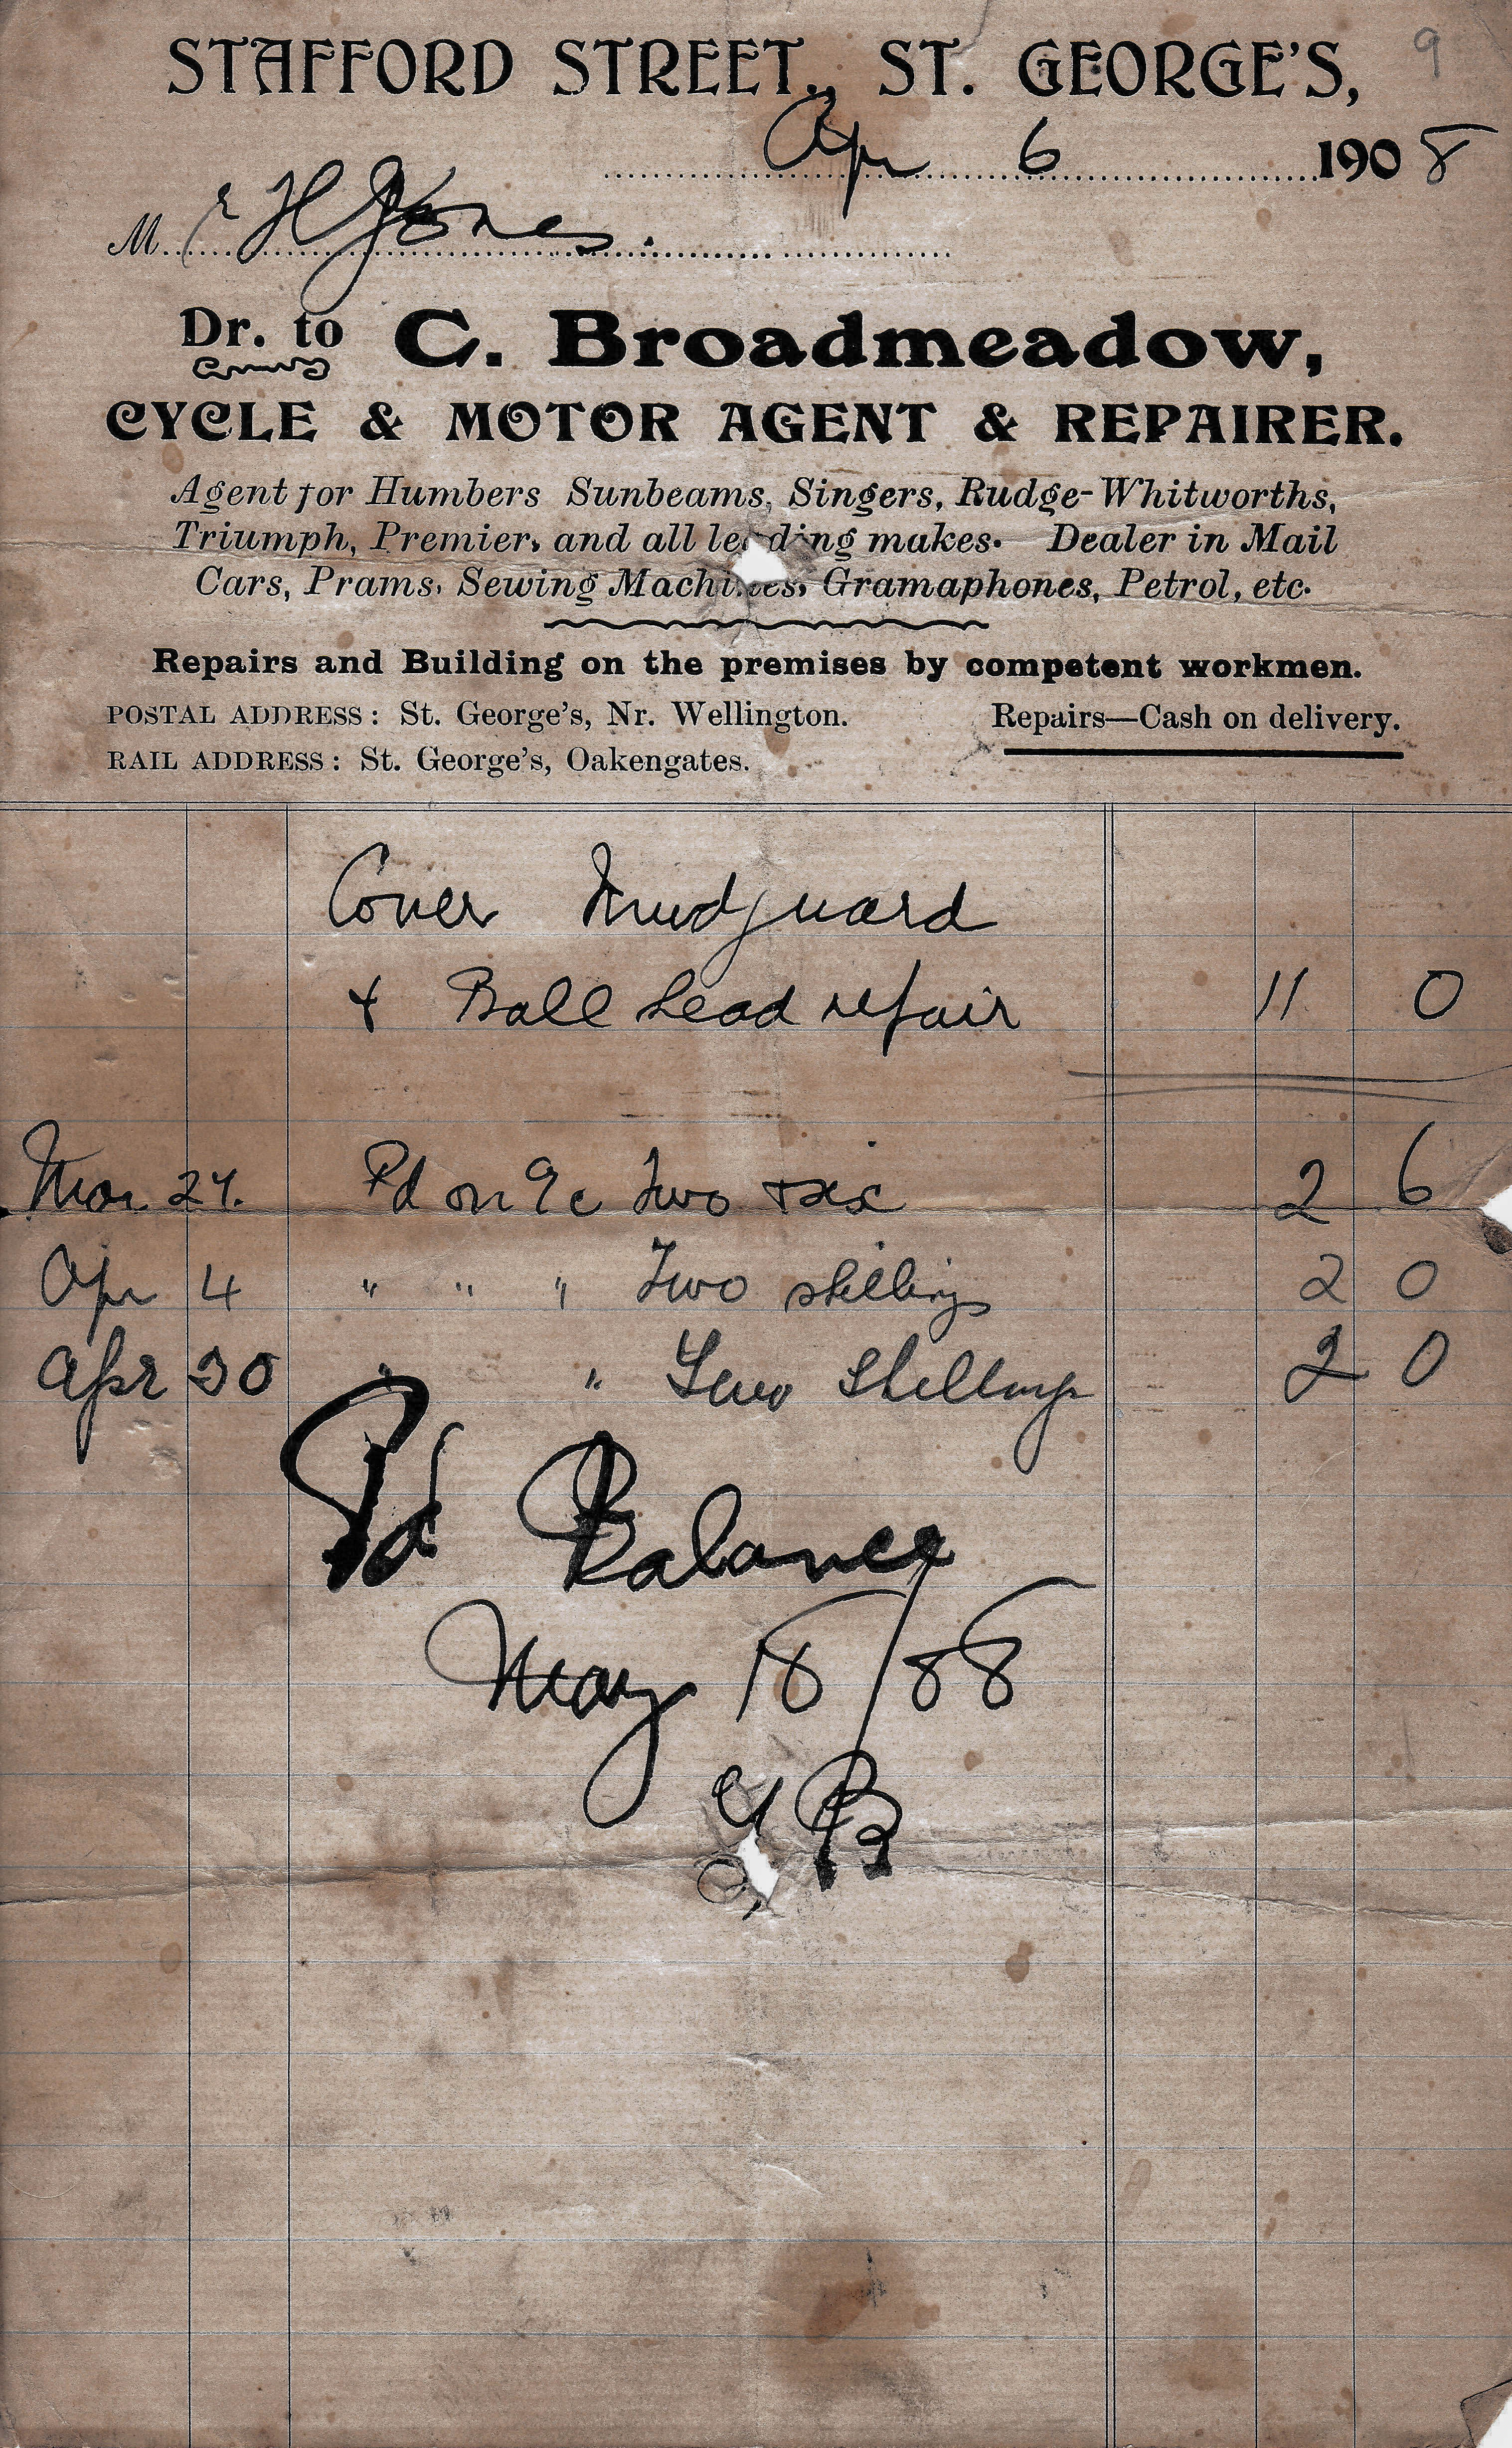 9
STAFFORD STREET., ST. GEORGE'S,
Apr 6 1908
Mr H Jones.
Dr. to C. Broadmeadow,
CYCLE & MOTOR AGENT & REPAIRER.
Agent for Humbers Sunbeams, Singers, Rudge-Whitworths,
Triumph, Premier, and all leading makes. Dealer in Mail
Cars, Prams, Sewing Machines, Gramaphones, Petrol, etc.
Repairs and Building on the premises by competent workmen.
POSTAL ADDRESS: St. George's, Nr. Wellington. Repairs—Cash on delivery.
RAIL ADDRESS: St. George's, Oakengates.
Cover Mudguard
& Ball head repair 11 0
Mar 27. Pd on a/c two six 2 6
Apr 4 " " " Two shillings 2 0
Apr 30 " " Two Shillings 2 0
Pd Balance
May 18/08
CB